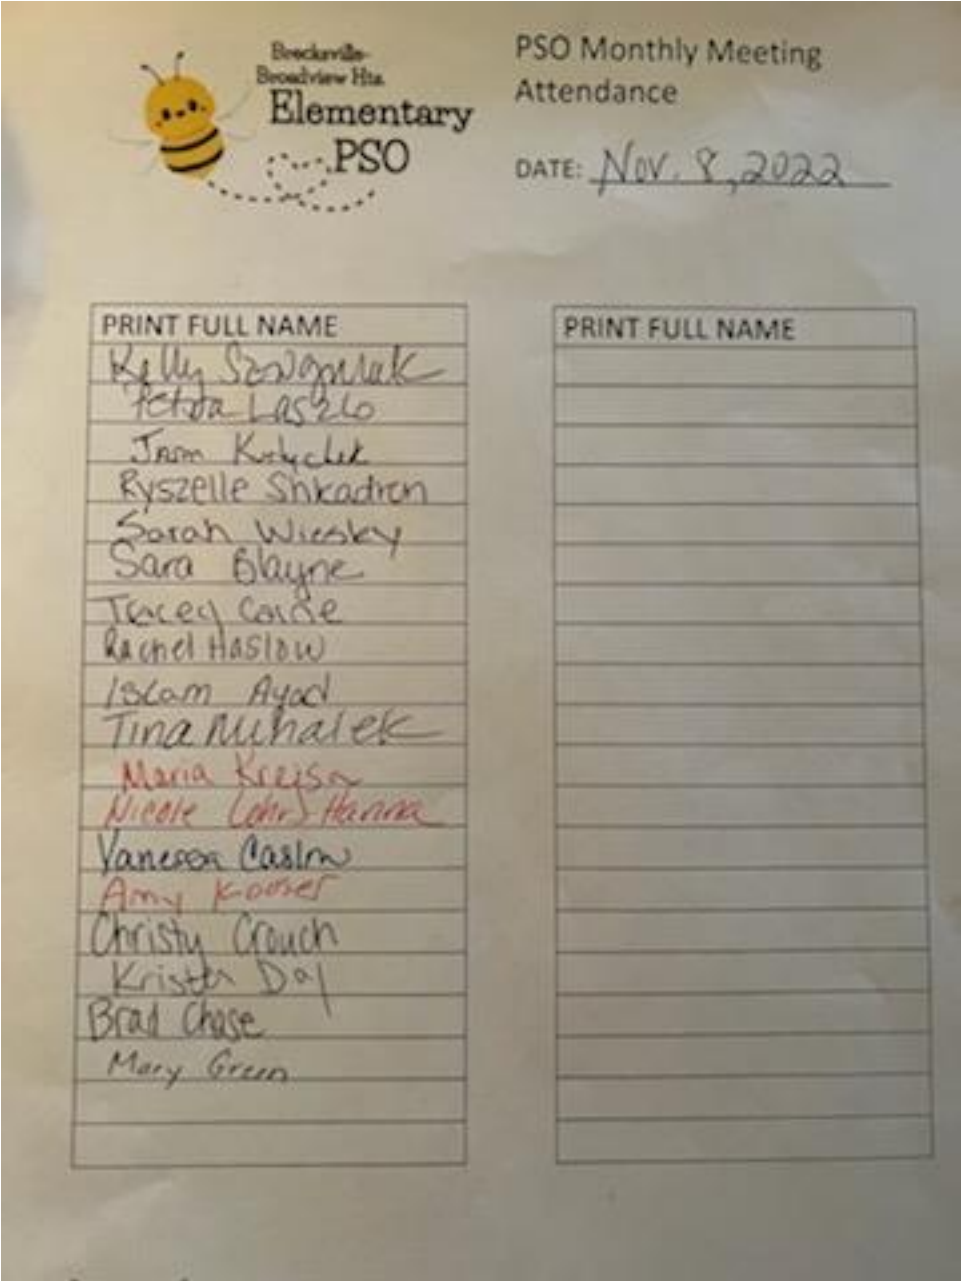 Brecksville-
Broadview Hts.
Elementary
PSO
PSO Monthly Meeting
Attendance
DATE: Nov. 8, 2022
PRINT FULL NAME
Kelly
Petra Laszlo
Jason
Ryszelle Shkadron
Sarah Wiesley
Sara Blayne
Tracey
Rachel Haslow
Islam Ayad
Tina Mihalek
Maria Krejsa
Nicole Lohr Hanna
Vanessa Caslow
Amy Kooser
Christy Crouch
Krista Day
Brad Chase
Mary Green
PRINT FULL NAME